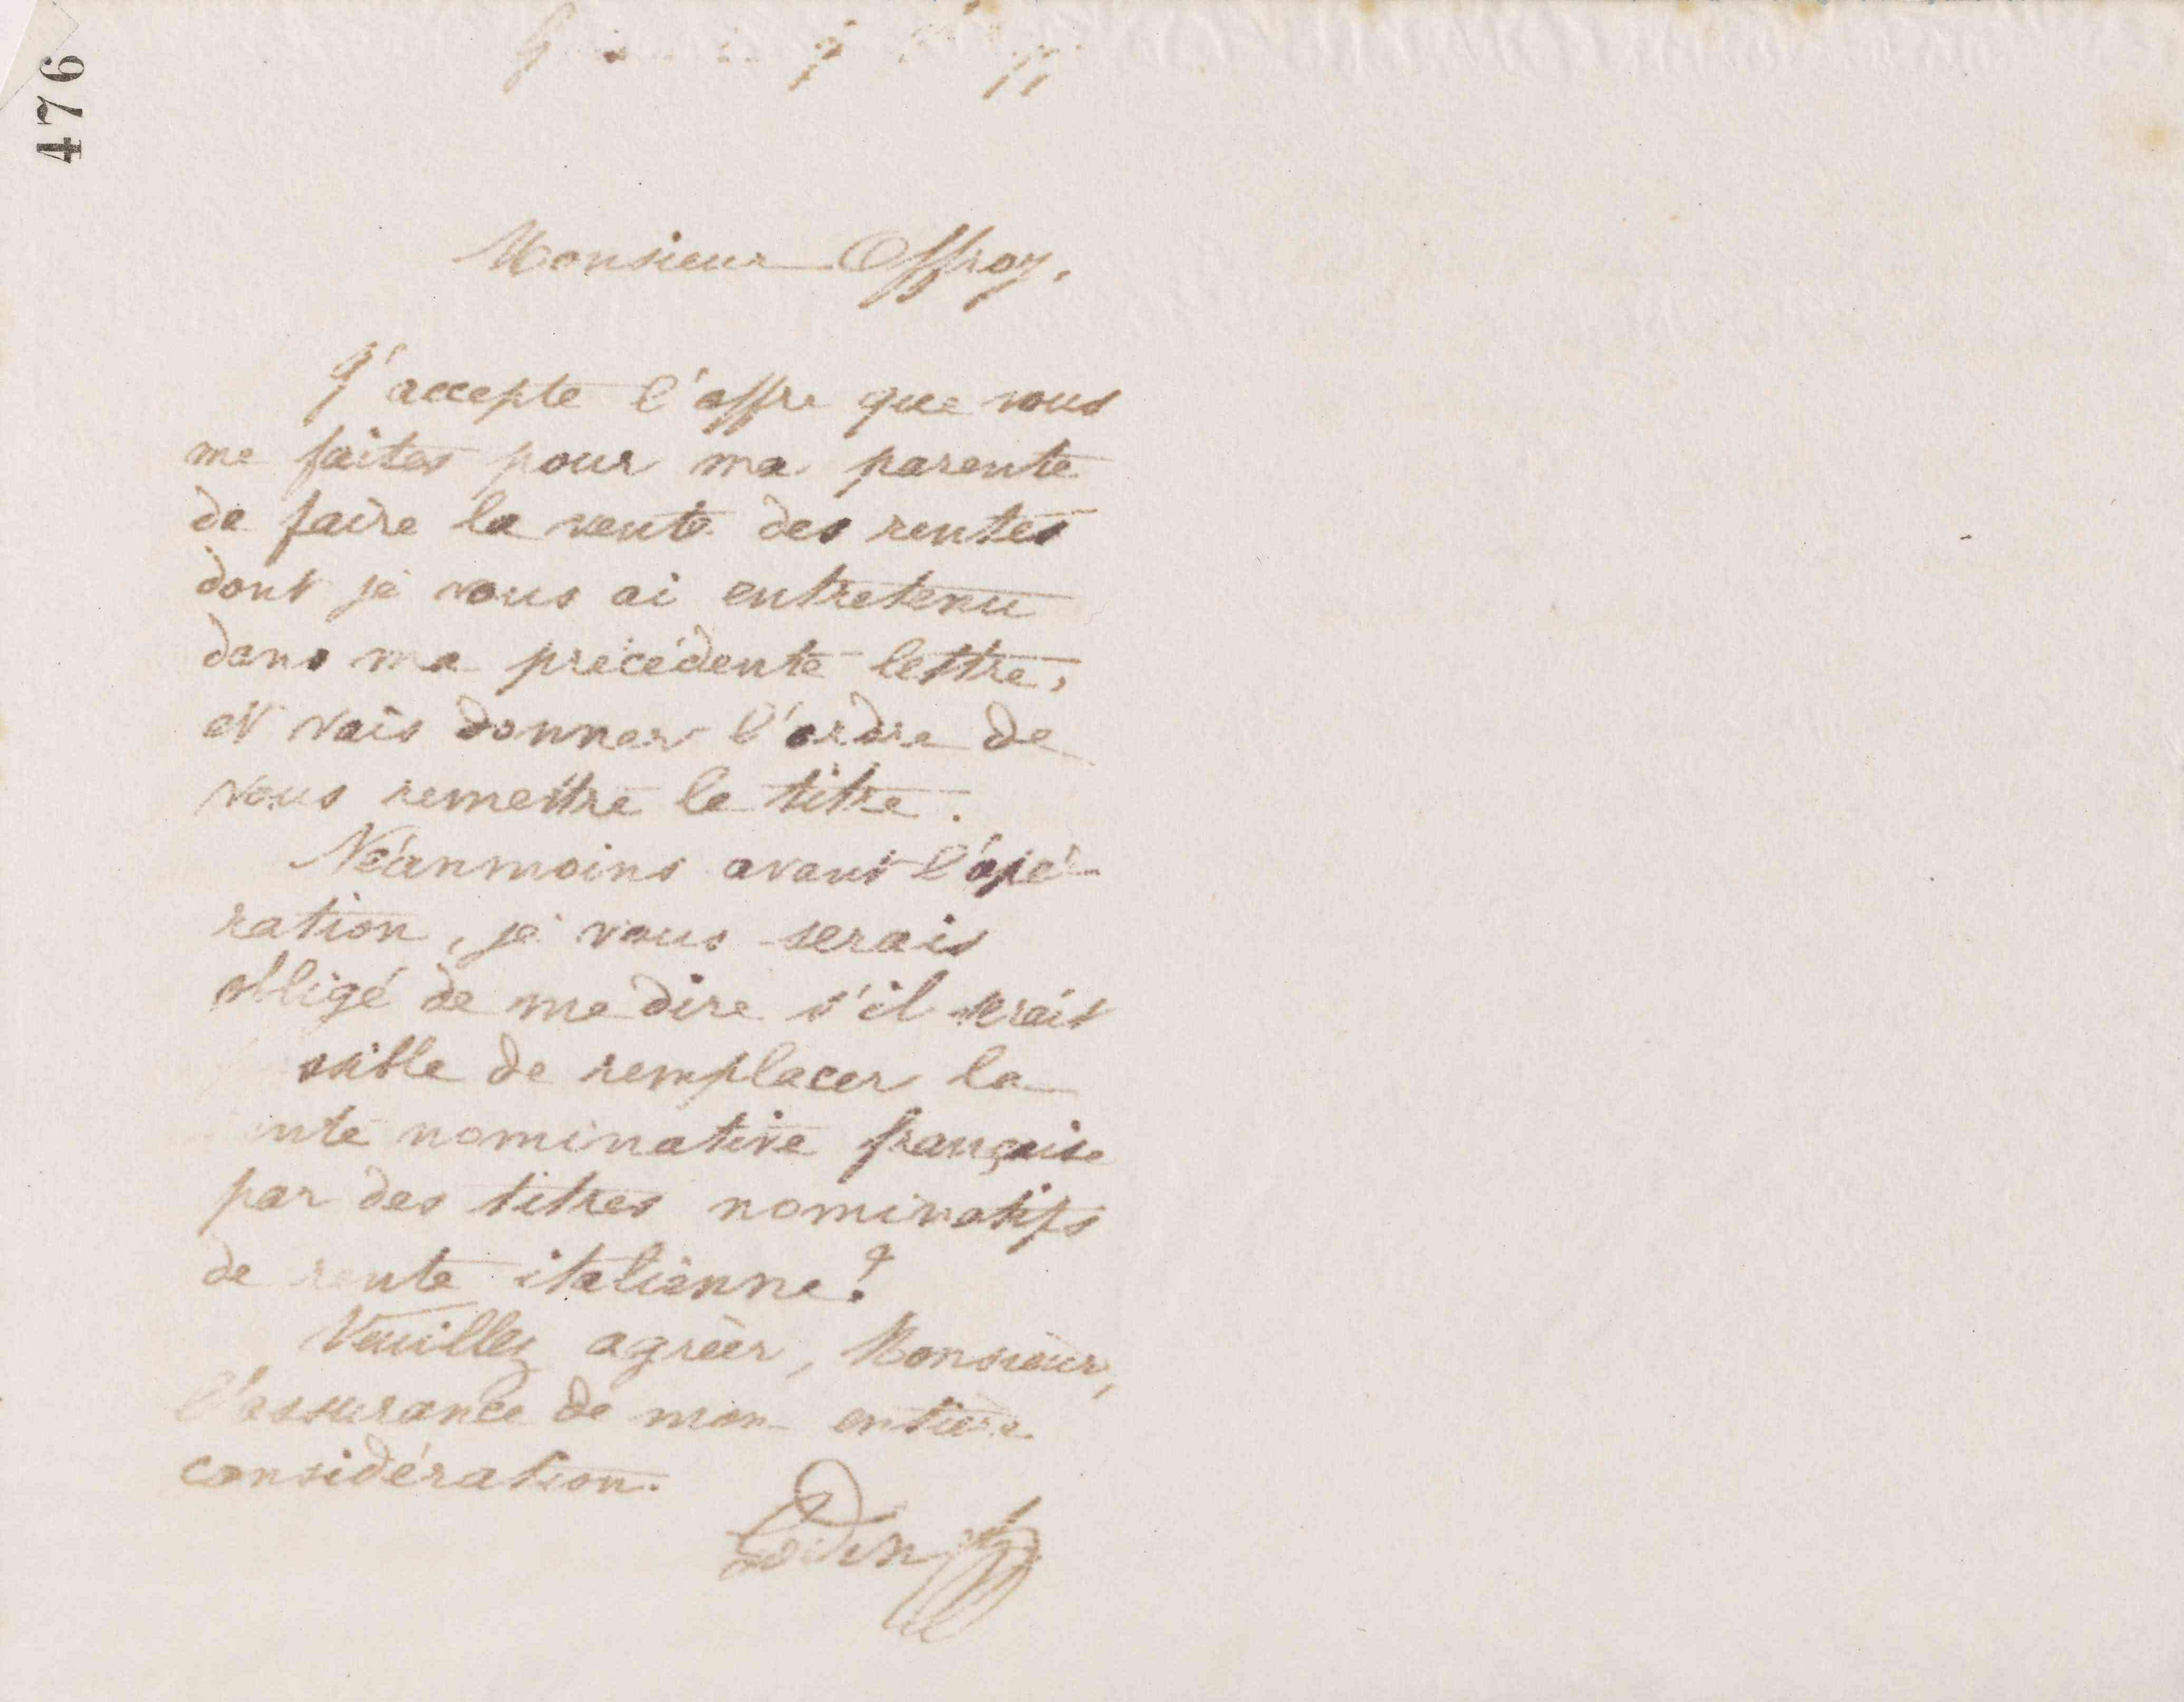 476
Monsieur Offroy,
J'accepte l'offre que vous
me faites pour ma parente
de faire la vente des rentes
dont je vous ai entretenu
dans ma précédente lettre,
et vais donner l'ordre de
vous remettre le titre.
Néanmoins avant l'opé-
ration, je vous serais
obligé de me dire s'il serait
ssible de remplacer la
nte nominative française
par des titres nominatifs
de rente italienne?
Veuillez agréer, Monsieur,
l'assurance de mon entière
considération.
Godin